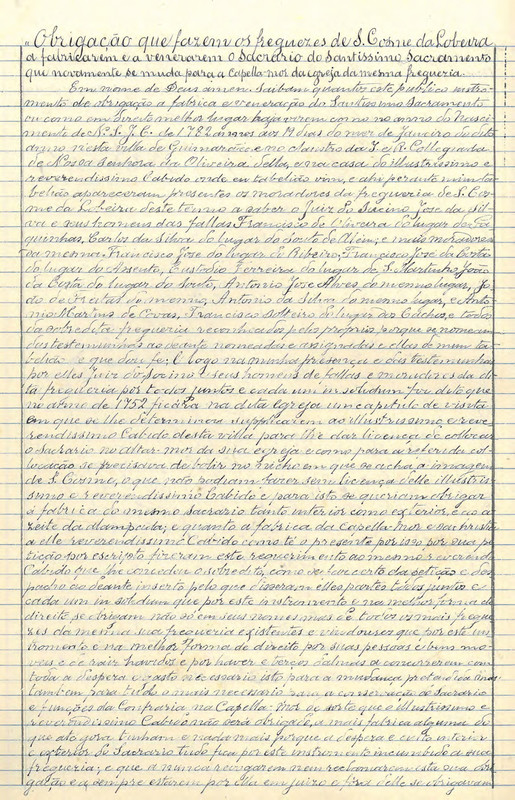 "Obrigação que fazem os freguezes de S. Cosme da Lobeira
a fabricarem e a venerarem o Sacrario do Santissimo Sacramento
que novamente se muda para a Capella-mor da egreja da mesma freguezia.
Em nome de Deus amen. Saibam quantos este publico instro-
mento de obrigação a fabrica e veneração do Santissimo Sacramento
ou como em direito melhor lugar haja virem que no anno do Nasci-
mento de N. S. J. C. de 1782 annos aos 14 dias do mez de Janeiro do dito
anno n'esta villa de Guimarães e no claustro da I. e R. Collegiada
de Nossa Senhora da Oliveira della, e na casa do illustrissimo e
reverendissimo Cabido onde eu tabelião vim, e ahi perante mim ta-
belião appareceram presentes os moradores da freguezia de S. Cos-
me da Lobeira deste termo a saber o Juiz do Jose da Sil-
va e seus homens das fallas Francisco de Oliveira do lugar da
Carlos da Silva do lugar do Souto de Alem, e mais moradores
da mesma Francisco Jose do lugar do Ribeiro, Francisco Jose da Costa
do lugar do Assento, Custodio Ferreira do lugar de S. Martinho, João
da Costa do lugar do Souto, Antonio Jose Alves do mesmo lugar, Jo-
ão de Freitas do mesmo, Antonio da Silva do mesmo lugar, e Anto-
nio Martins de Covas, Francisco Solteiro do lugar das e todos
da sobredita freguezia reconhecidos pelos proprios porque se nomeam
das testemunhas ao deante nomeadas e assignadas e ellas de mim ta-
belião o que dou fé; E logo na minha presença e das testemunhas
por elles Juiz do e seus homens de fallas e moradores da di-
ta freguezia por todos juntos e cada um in solidum foi dito que
no anno de 1752 ficára na dita egreja um capitulo de visita
em que se lhe determinava supplicarem ao illustrissimo e reve-
rendissimo Cabido desta villa para lhe dar licença de collocar
o Sacrario no altar mor da sua egreja e como para a referida col-
locação se precisava de bolir no nicho em que se acha a imagem
de S. Cosme, o que não podiam fazer sem licença delle illustris-
simo e reverendissimo Cabido e para isto se queriam obrigar
á fabrica do mesmo Sacrario tanto interior como exterior, e ao a-
zeite da alampada; e quanto a fabrica da Capella-Mor e sachristia
a elle reverendissimo Cabido como té o presente, por isso por sua pe-
tição por escripto fizeram este requerimento ao mesmo reverendo
Cabido que lhe concedeu o sobredito, como se vae certo da petição e des-
pacho ao deante inserto pelo que disseram elles partes todos juntos e
cada um in solidum que por este instromento e na melhor forma de
direito se obrigam não só em seus nomes mas de todos os mais fregue-
zes da mesma sua freguezia existentes e vindouros que por este ins-
tromento e na melhor forma de direito por suas pessoas e bens mo-
veis e de raiz havidos e por haver e terços d'almas a concorrerem com
toda a despeza e gasto necessario isto para a mudança
tambem para tudo o mais necessario para a conservação do Sacrario
e funções da Confraria, na Capella-Mor de sorte que o illustrissimo e
reverendissimo Cabido não será obrigado a mais fabrica alguma do
que até gora tinham e nada mais porque a despeza e custo interior
e exterior do Sacrario tudo fica por este instromento incumbido á sua
freguezia; e que a nunca revogarem nem reclamarem esta sua obri-
gação e a sempre estarem por ella em juizo e fora d'elle se obrigavam